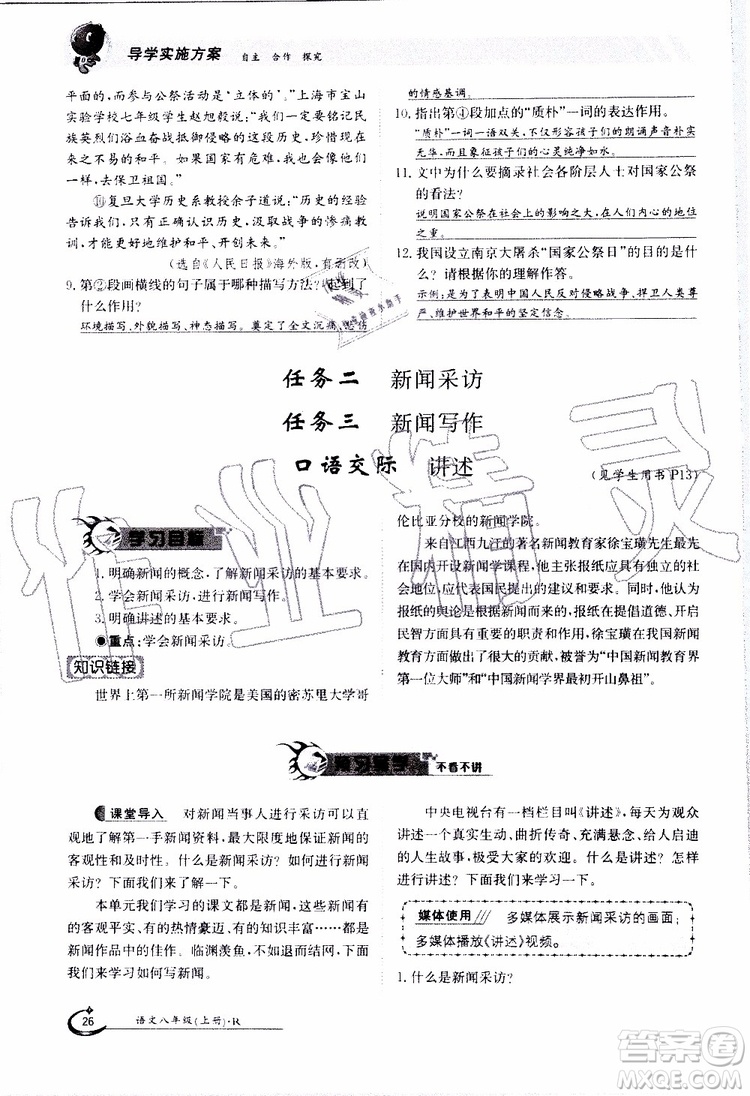 导学实施方案 自主 合作 探究
平面的,而参与公祭活动是‘立体的’。”上海市宝山
实验学校七年级学生赵旭毅说:“我们一定要铭记民
族英烈们浴血奋战抵御侵略的这段历史,珍惜现在
来之不易的和平。如果国家有危难,我也会冲上前
去,去保卫祖国。”
⑩复旦大学历史系教授余子道说:“历史的经验
告诉我们,只有正确认识历史,汲取战争的惨痛教
训,才能更好地维护和平、开创未来。
(选自《人民日报》海外版,有删改)
9. 第②段画横线的句子属于哪种描写方法?起到了
什么作用?
环境描写、外貌描写、神态描写。奠定了全文沉痛、悲伤
的情感基调。
10. 指出第④段加点的“质朴”一词的表达作用。
“质朴”一词一语双关,不仅形容孩子们的朗诵声音朴实
无华,而且象征孩子们的心灵纯净如水。
11. 文中为什么要摘录社会各阶层人士对国家公祭
的看法?
说明国家公祭在社会上的影响之大,在人们内心的地位
之重。
12. 我国设立南京大屠杀“国家公祭日”的目的是什
么?请根据你的理解作答。
示例:是为了表明中国人民反对侵略战争、捍卫人类尊
严、维护世界和平的坚定信念。
任务二 新闻采访
任务三 新闻写作
口语交际 讲述
(见学生用书 P13)
学习目标
1. 明确新闻的概念,了解新闻采访的基本要求。
2. 学会新闻采访,进行新闻写作。
3. 明确讲述的基本要求。
●重点:学会新闻采访。
知识链接
世界上第一所新闻学院是美国的密苏里大学哥
伦比亚分校的新闻学院。
来自江西九江的著名新闻教育家徐宝璜先生最先
在国内开设新闻学课程,他主张报纸应具有独立的社
会地位,应代表国民提出的建议和要求。同时,他认为
报纸的舆论是根本的,报纸在提倡道德、开启
民智方面具有重要的职责和作用,徐宝璜为我国新闻
教育方面做出了很大的贡献,被称为“中国新闻教育界
第一位大师”和“中国新闻学界最初开山鼻祖”。
预习导学 不看不讲
课堂导入 对新闻当事人进行采访可以直
观地了解第一手新闻资料,最大限度地保证新闻的
客观性和及时性。什么是新闻采访?如何进行新闻
采访?下面我们来了解一下。
本单元我们学习的课文都是新闻,这些新闻有
的客观平实、有的热情豪迈、有的知识丰富……都是
新闻作品中的佳作。临渊羡鱼,不如退而结网。下面
我们来学习如何写新闻。
中央电视台有一档栏目叫《讲述》,每天为观众
讲述一个真实生动、曲折传奇、充满悬念、给人启迪
的人生故事,极受大家的欢迎。什么是讲述?怎样
进行讲述?下面我们来学习一下。
媒体使用 多媒体展示新闻采访的画面;
多媒体播放《讲述》视频。
1. 什么是新闻采访?
26 语文八年级(上册)·R
作业精灵
答案圈
MXQE.COM